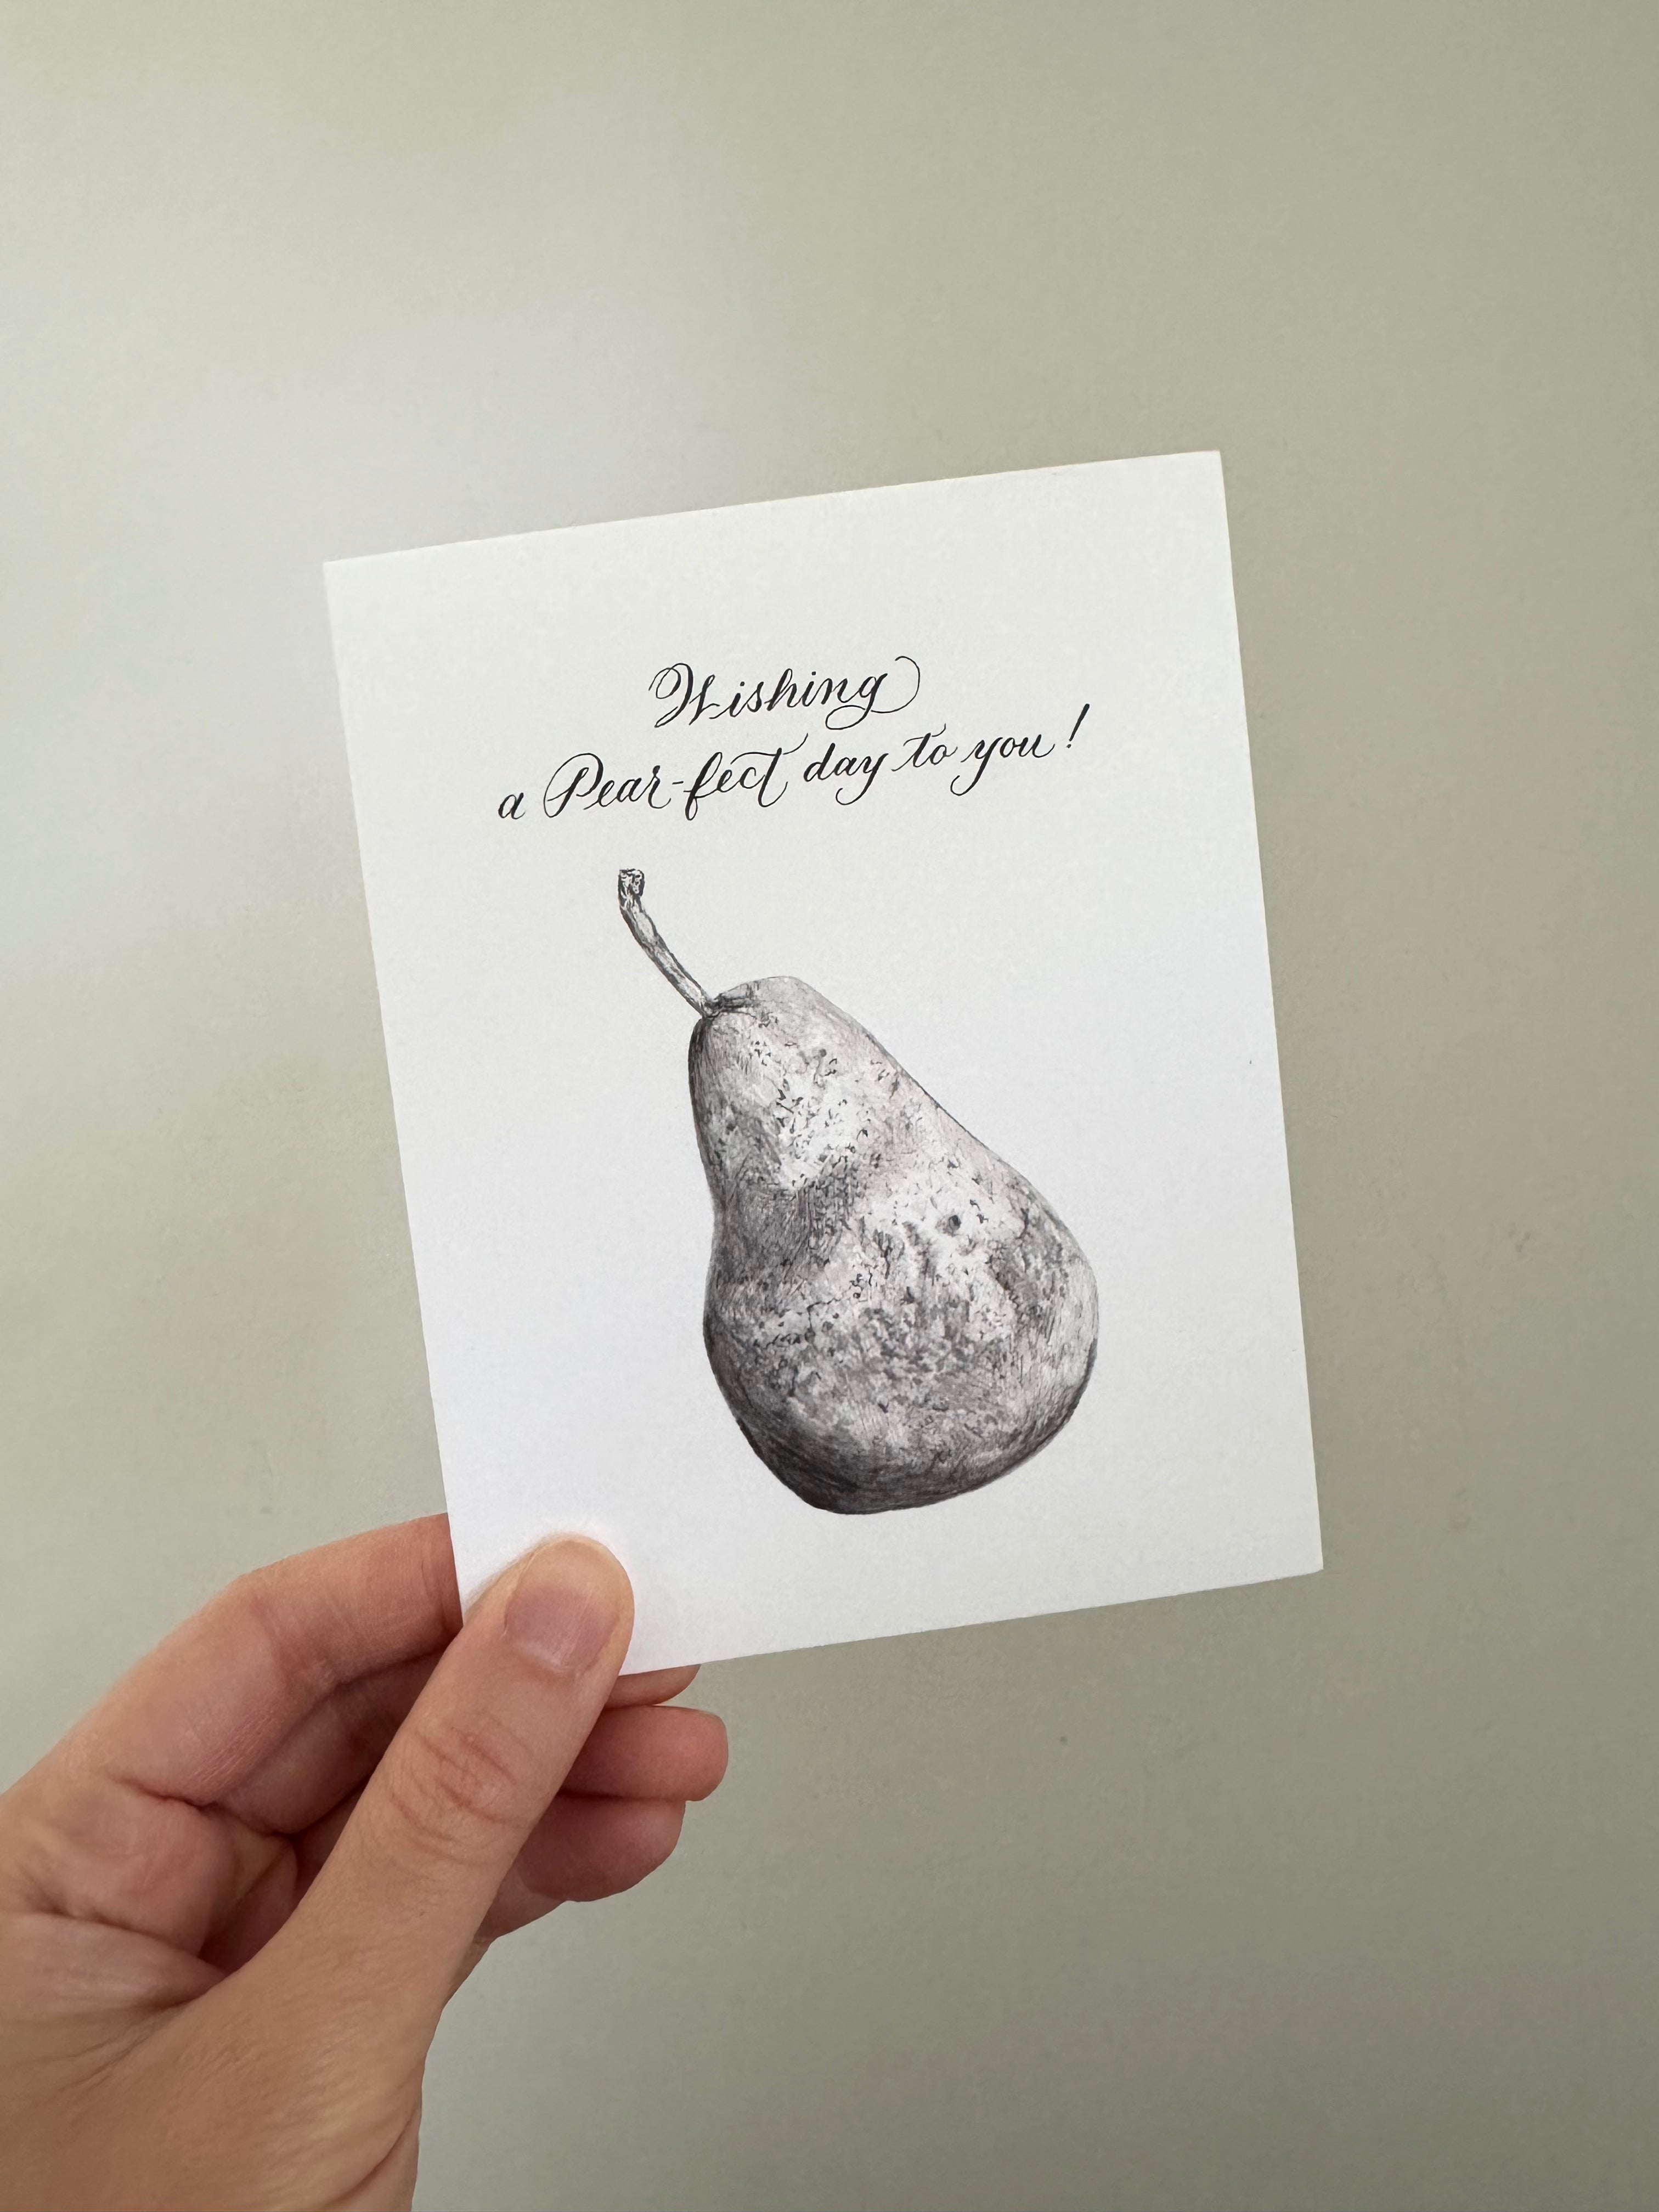 Wishing
a Pear-fect day to you!